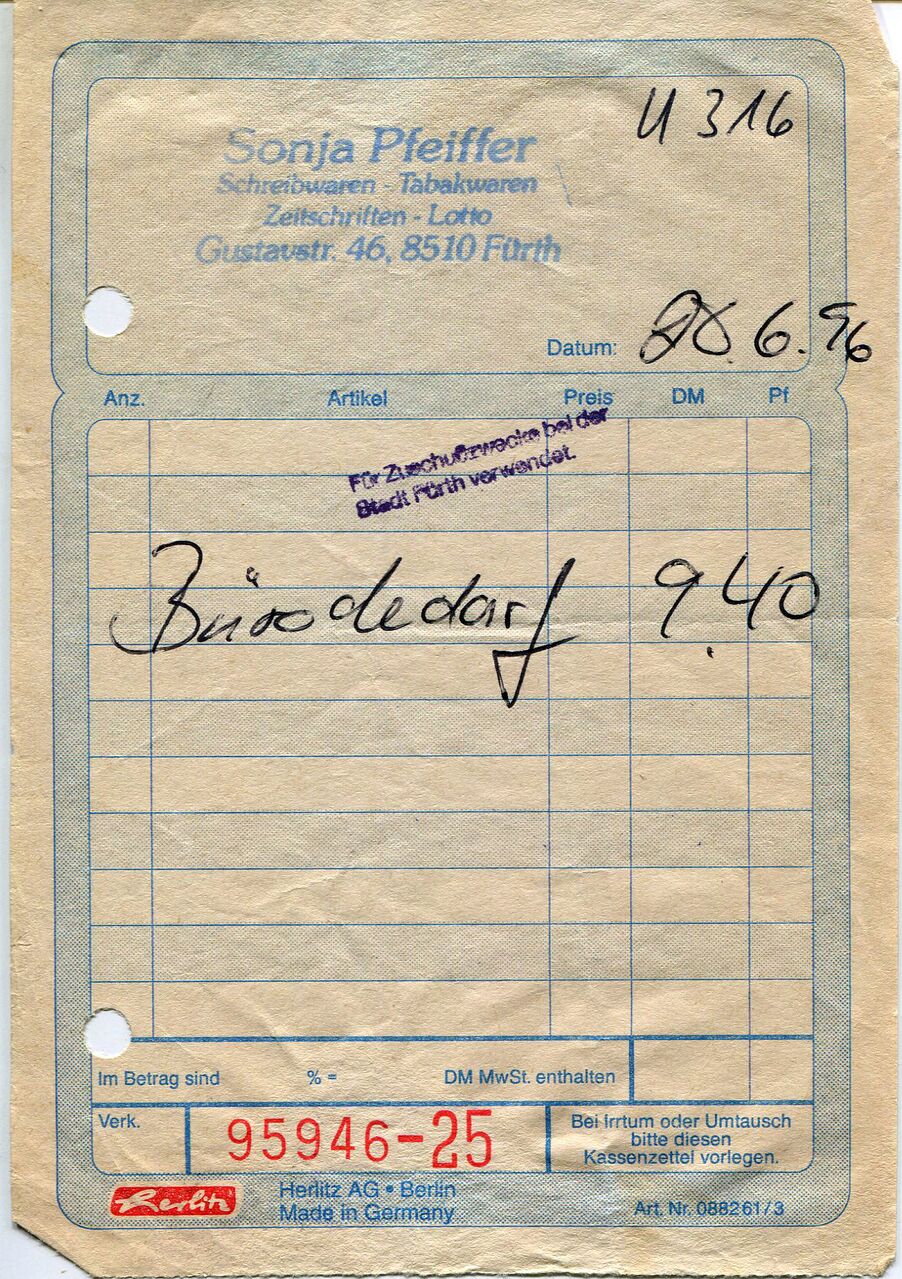 U 316
Sonja Pfeiffer
Schreibwaren - Tabakwaren
Zeitschriften - Lotto
Gustavstr. 46, 8510 Fürth
Datum: 6.96
Anz. Artikel Preis DM Pf
Für Zuschußzwecke bei der
Stadt Fürth verwendet.
Bürobedarf 9.40
Im Betrag sind % = DM MwSt. enthalten
Verk. 95946-25
Bei Irrtum oder Umtausch
bitte diesen
Kassenzettel vorlegen.
Herlitz
Herlitz AG • Berlin
Made in Germany
Art. Nr. 088261/3